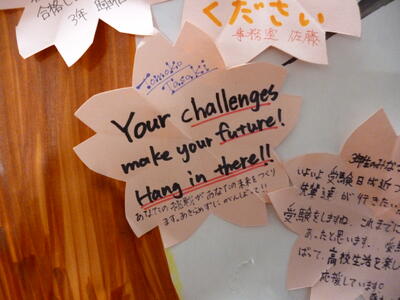 合格し
3年
ください
事務室 佐藤
Tomoko
Your challenges
make your future!
Hang in there!!
あなたの挑戦があなたの未来をつくり
ます。あきらめずにがんばって!!
3年生のみな
いよいよ受験日が近づ
先輩達が行きたい
受験をしますね。これまでに
あったと思います。
ばって、高校生活を楽し
応援しています。